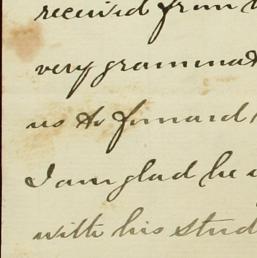 received from
very grammat
us to forward
I am glad he
with his stud